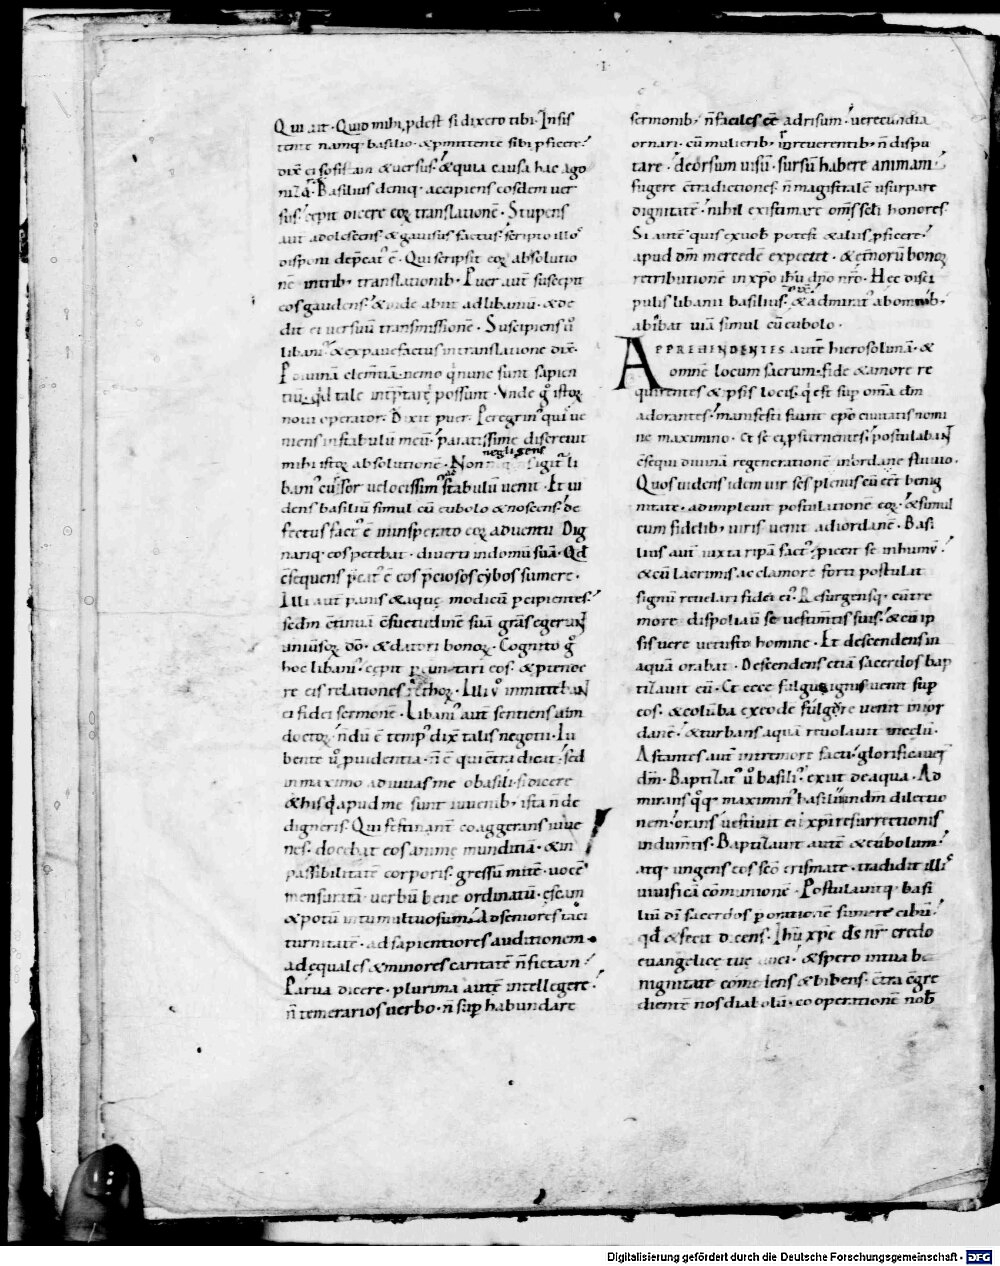 ·I·
Qui ait · Quid mihi ꝓdest si dixero tibi · Insis
tente namq; basilio · & ꝑmittente sibi ꝓficere ·
dix̄ ei sofistam & versus · & quia causa hac ago
niza · Basilius deniq; accipiens eosdem ver
sus · cepit dicere eoꝝ translationē · Stupens
aut̄ adolescens · & gavisus factus · scripto illoꝰ
disponi dep̄catꝰ ē · Qui scripsit eoꝝ absolutio
nē intrib; translationib; · Puer aut̄ suscepit
eos gaudens · & inde abiit ad libaniū · & de
dit ei versuū transmissionē · Suscipiens ū
libaniꝰ · & expavefactus in translatione dix̄ ·
P divinā clem̄tiā · nemo q nunc sunt sapien
tiū · qd tale int̄ptare possunt · Unde g istoꝝ
novi operator · Dixit puer · Peregrinꝰ qui ve
niens in stabulū meū · paratissime discrevit
negligens
mihi istoꝝ absolutionē · Non igit li
baniꝰ cursor velocissimꝰ stabulū venit · Et vi
dens basiliū simul cū eubolo & noscens · de
fectus factꝰ ē in insperato eoꝝ adventu Dig
nariq; eos petebat · diverti in domū suā · Qd
c̄sequens p̄catꝰ ē eos p̄ciosos cybos sumere ·
Illi aut̄ panis & aquę modicū ꝑcipientes ·
sedm c̄tinuā c̄suetudinē suā gras egerunt
uniusoꝝ dō · & datori bonoꝝ · Cognito g
hoc libaniꝰ · cepit ꝑcunctari eos · & p̄tende
re eis relationes rethoꝝ · Illi ū inmitteban
ei fidei sermonē · Libaniꝰ aut̄ sentiens vim
doctoꝝ · ndū ē tempꝰ dix̄ talis negotii · Iu
bente ū ꝓvidentia · n̄ ē qui c̄tra dicat · sed
in maximo adiuvas me o basili · si dicere
& his q apud me sunt iuvenib; ista n̄ de
digneris · Qui festinant coaggerans iuve
nes · docebat eos animę munditiā · & in
passibilitatē corporis · gressū mitē · vocē
mensuratā · verbū bene ordinatū · escam
& potū in tumultuosum · Ad seniores taci
turnitatē · ad sapientiores auditionem ·
ad ęquales & minores caritatē n̄ fictam ·
Parva dicere · plurima autē intellegere ·
n̄ temerarios verbo · n̄ sup habundare
sermonib; n̄ faciles eē ad risum · verecundia
ornari · cū mulierib; inreverentib; n̄ dispu
tare · deorsum visū · sursū habere animam ·
fugere c̄tradictiones · n̄ magistralē usurpare
dignitatē · nihil existimare om̄s scli honores
Si autē quis ex vob̄ potest & aliis ꝓficere ·
apud dm̄ mercedē expectet · & et̄norū bonoꝝ
retributionē in xpo ihu dno nr̄o · Hęc disci
pulis libanii basilius · & admiratꝰ ab omib; ·
abibat viā simul cū eubolo ·
APPREHENDENTES autē hierosolimā · &
omnē locum sacrum · fide & amore re
quirentes & ipsis locis · q est sup om̄a dm̄
adorantes · manifesti fiunt epo civitatis nomi
ne maximino · Et se ei ꝓsternentes · postulabant
c̄sequi divinā regenerationē in iordane fluvio ·
Quos videns idem vir scs plenus cū eet benig
nitate · adimplevit postulationē eoꝝ · & simul
cum fidelib; viris venit ad iordanē · Basi
lius aut̄ iuxta ripā factꝰ · piecit se in humū ·
& cū lacrimis ac clamore forti postulat
signū revelari fidei eiꝰ · Resurgensq; cū tre
more · dispoliavit se vestim̄tis suis · & cū ip
sis vere vetusto homine · Et descendens in
aquā orabat · Descendens etiā sacerdos bap
tizavit eū · Et ecce fulgus ignis venit sup
eos · & colūba ex eo de fulgore venit in ior
danē · & turbans aquā revolavit in celū ·
Astantes aut̄ in tremore facti · glorificavet
dm̄ · Baptizatꝰ ū basiliꝰ exiit de aqua · Ad
mirans qq maximinꝰ basilii in dm̄ dilectio
nem · orans vestivit eū xpi resurrectionis
indum̄tis · Baptizavit autē & eubolum ·
atq; ungens eos scō crismate · tradidit illiꝰ
vivificā cōmunionē · Postulavitq; basi
liū dī sacerdos p orationē sumere cibū ·
qd & fecit dicens · Ihu xpe ds nr̄ credo
evangelicę tuę · & spero in tua be
nignitate comedens & bibens · c̄tra egre
dientē nos diabolū · cooperationē nob
Digitalisierung gefördert durch die Deutsche Forschungsgemeinschaft - DFG